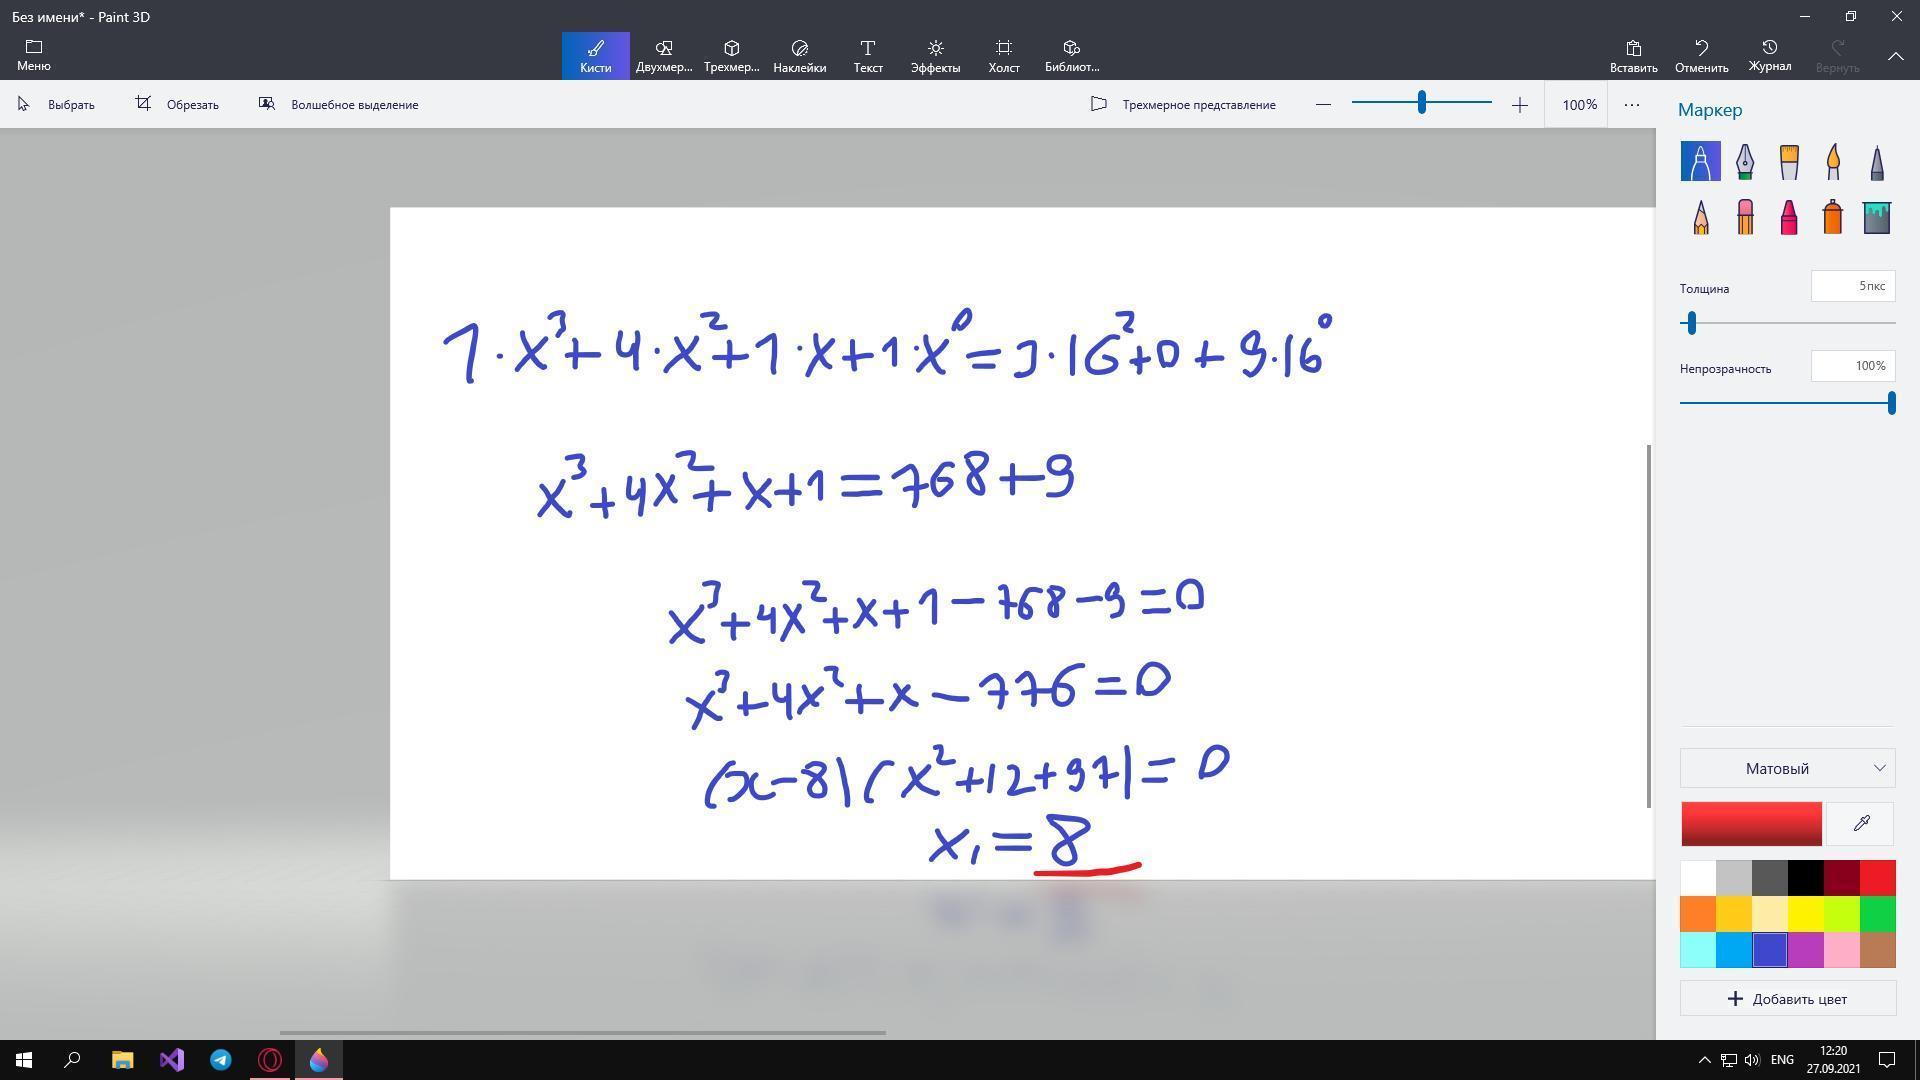 Без имени* - Paint 3D
Меню
Кисти
Двухмер...
Трехмер...
Наклейки
Текст
Эффекты
Холст
Библиот...
Вставить
Отменить
Журнал
Вернуть
Выбрать
Обрезать
Волшебное выделение
Трехмерное представление
100%
Маркер
Толщина
5пкс
Непрозрачность
100%
1·x³+4·x²+1·x+1·x⁰=3·16²+0+9·16⁰
x³+4x²+x+1=768+9
x³+4x²+x+1-768-9=0
x³+4x²+x-776=0
(x-8)(x²+12+97)=0
x₁=8
Матовый
Добавить цвет
ENG
12:20
27.09.2021